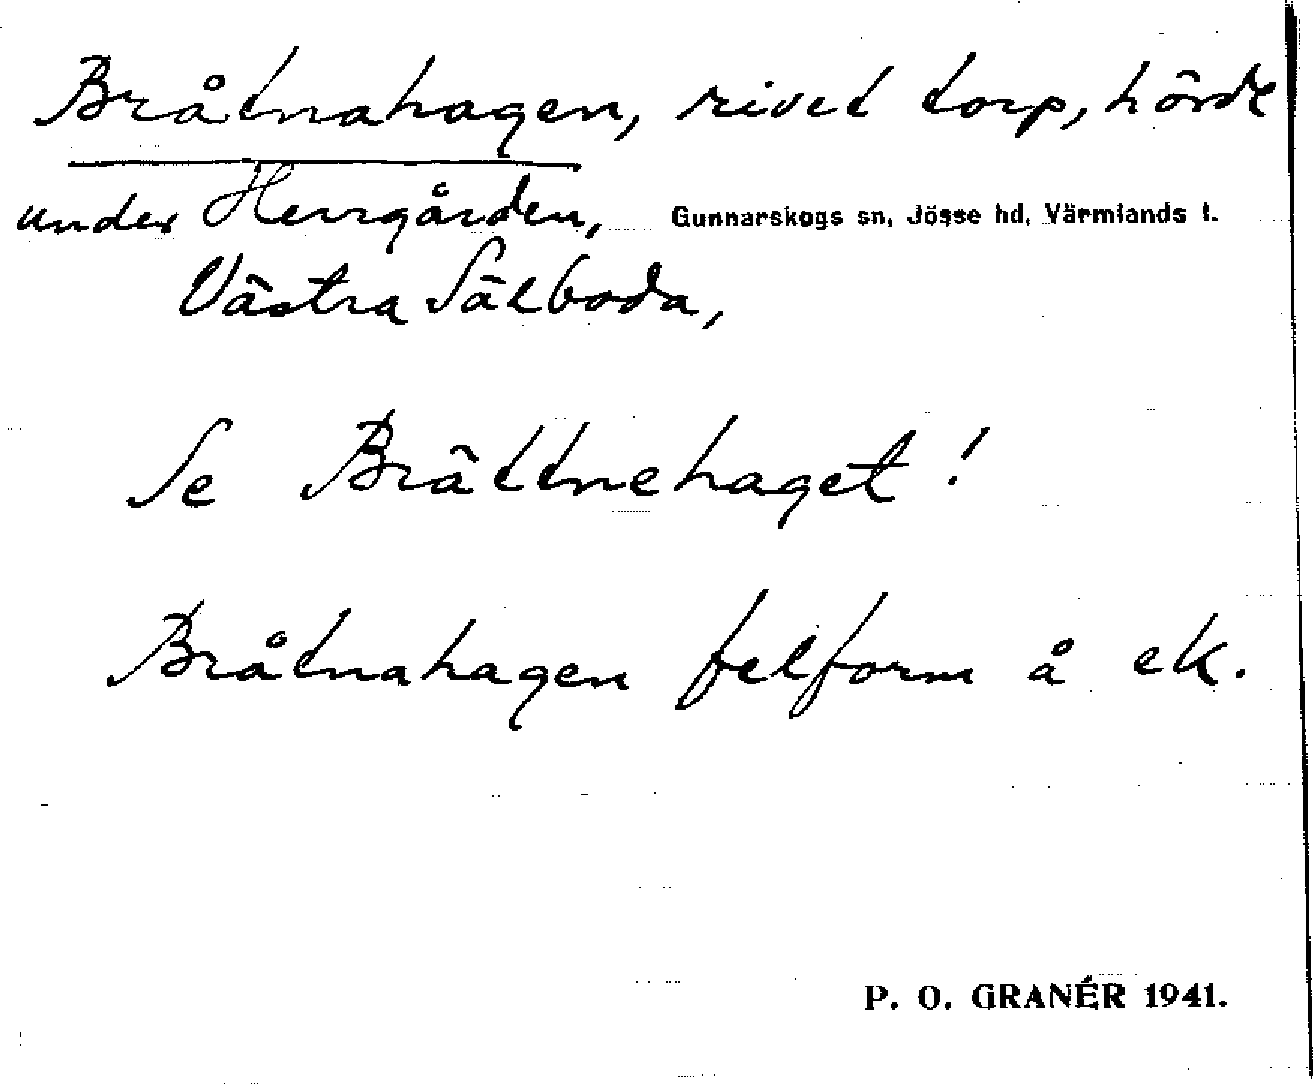 Bråtnahagen, rivet torp, hörde
under Herrgården, Gunnarskogs sn, Jösse hd, Värmlands l.
Västra Sälboda,
Se Brättnehaget!
Bråtnahagen felform å ek.
P. O. GRANÉR 1941.